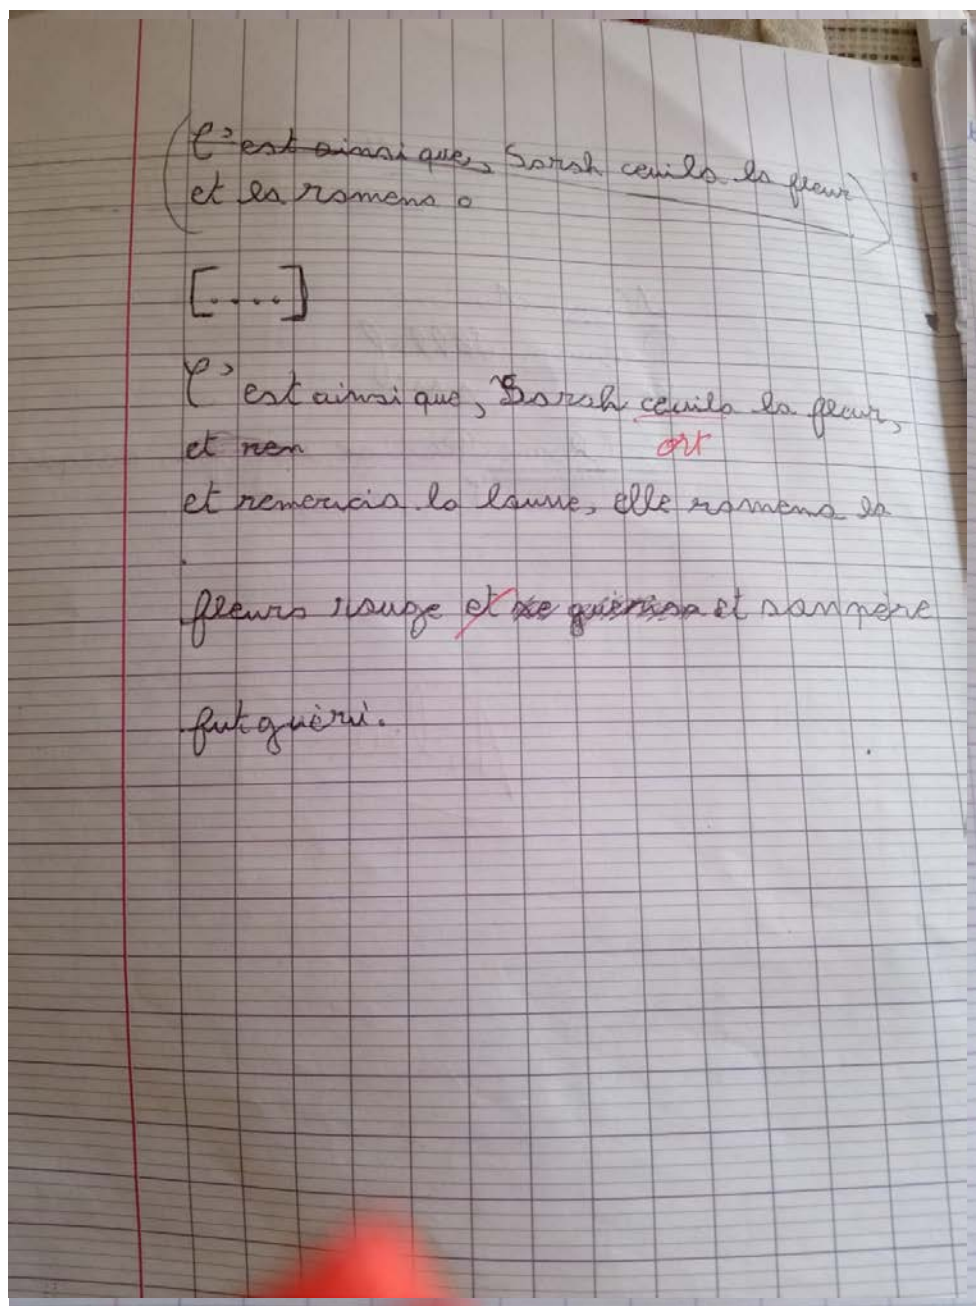 C'est ainsi que, Sarah ceuila la fleur
et la ramena.
[....]
C'est ainsi que, Sarah ceuila la fleur,
ort
et rem
et remercia la louve, elle ramena la
fleurs rouge et et son père
fut guèri.